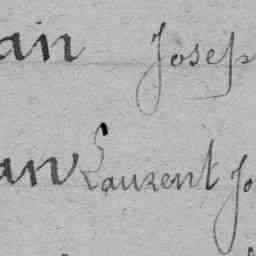 an Josep
an Laurent Jo